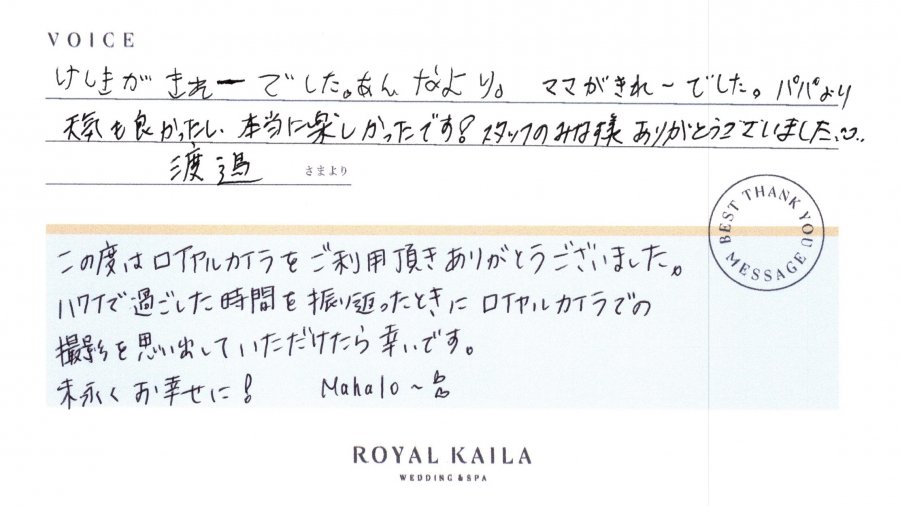 VOICE
けしきがきれーでした。あんなより。 ママがきれ〜でした。パパより
天気も良かったし、本当に楽しかったです!スタッフのみな様ありがとうございました
渡邉 さまより
BEST THANK YOU MESSAGE
この度はロイヤルカイラをご利用頂きありがとうございました。
ハワイで過ごした時間を振り返ったときにロイヤルカイラでの
撮影を思い出していただけたら幸いです。
末永くお幸せに! Mahalo〜
ROYAL KAILA
WEDDING & SPA